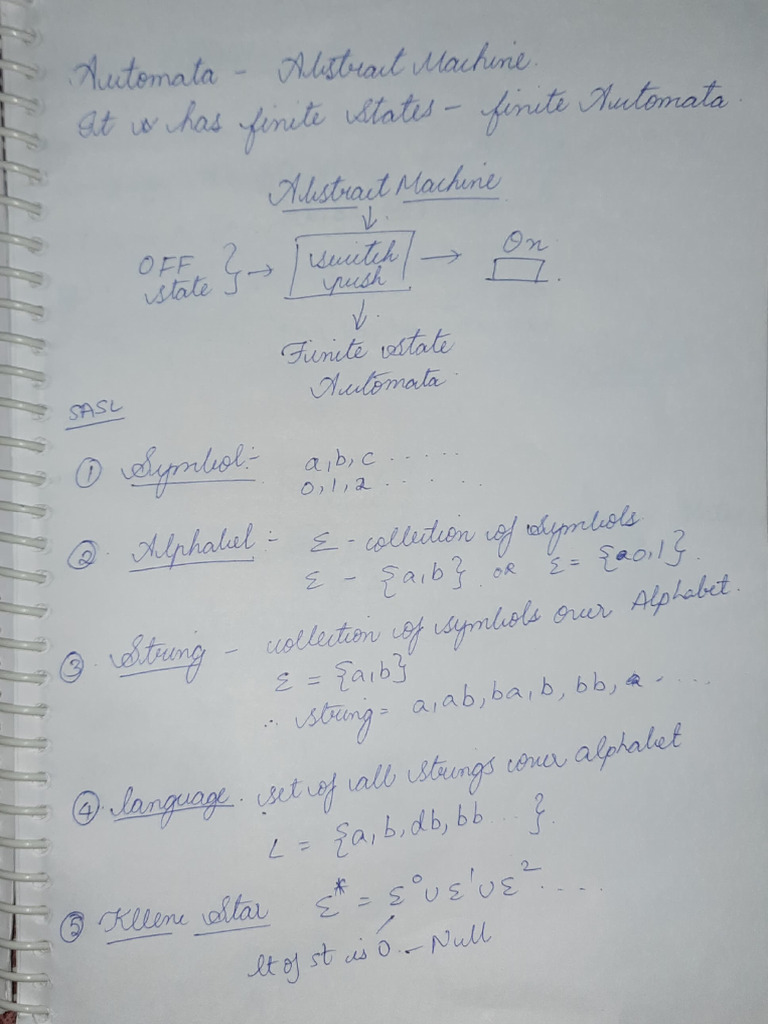 Automata - Abstract Machine.
It has finite states - finite Automata.
Abstract Machine
OFF state } → [switch push] → On
Finite state
Automata
SASL
① Symbol:- a,b,c .....
0,1,2 ......
② Alphabet:- Σ - collection of symbols
Σ - {a,b} OR Σ = {0,1}.
③. String - collection of symbols over Alphabet.
Σ = {a,b}
∴ string = a, ab, ba, b, bb, a ....
④ language. set of all strings over alphabet
L = {a, b, db, bb ... }.
⑤ Kllene Star Σ* = Σ⁰ ∪ Σ¹ ∪ Σ² ....
lt of st is 0 - Null